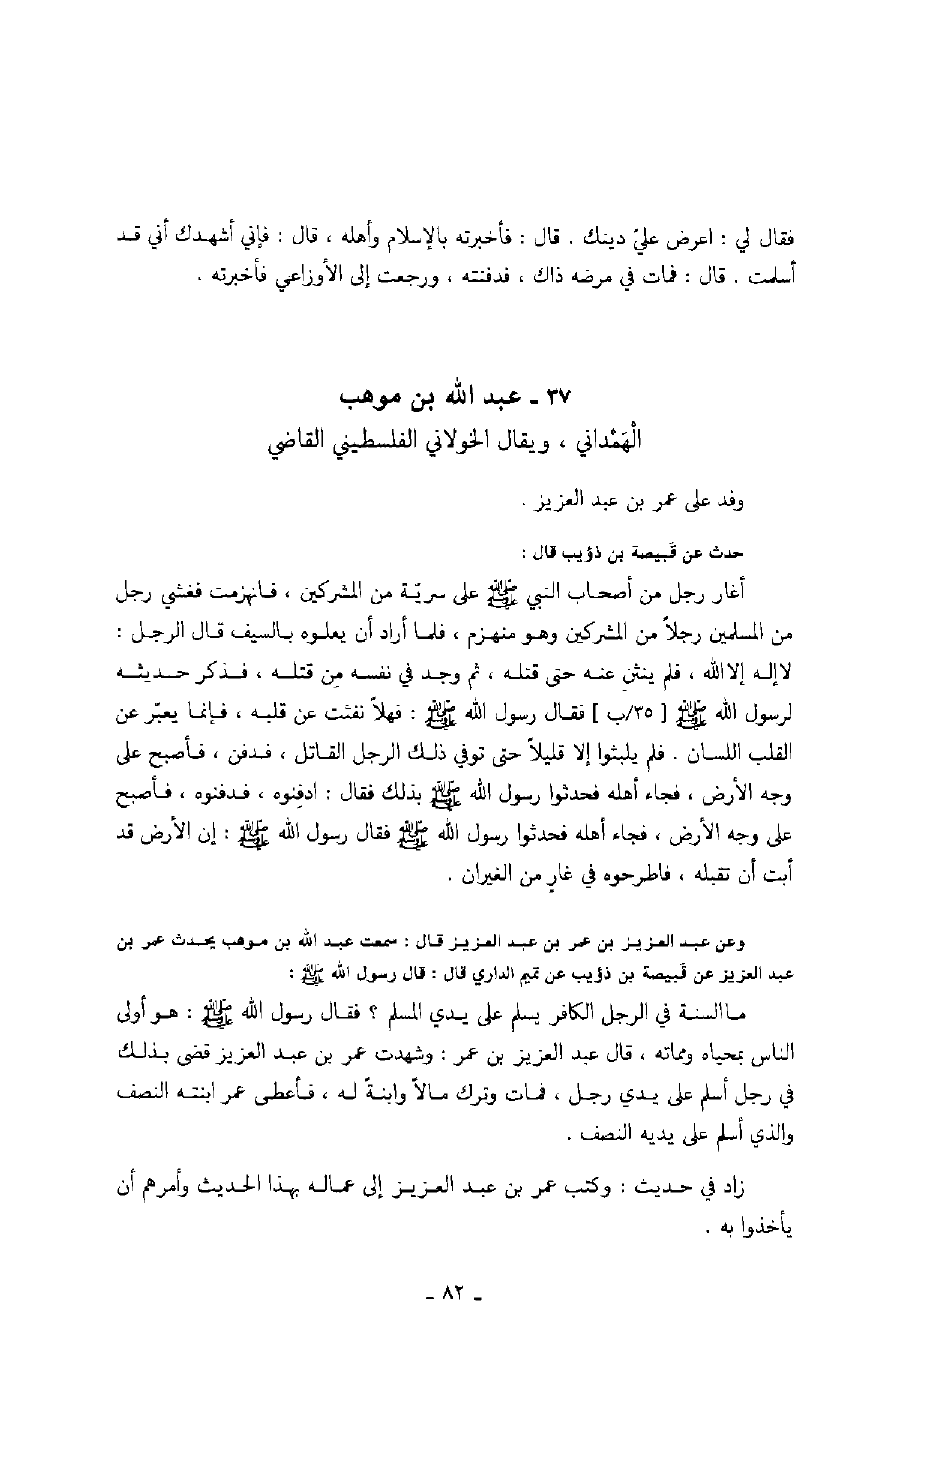 فقال لي : اعرض عليّ دينك . قال : فأخبرته بالإسلام وأهله ، قال : فإني أشهدك أني قد
أسلمت . قال : فمات في مرضه ذاك ، فدفنته ، ورجعت إلى الأوزاعي فأخبرته .
٣٧ ـ عبد الله بن موهب
الْهَمْداني ، ويقال الخولاني الفلسطيني القاضي
وفد على عمر بن عبد العزيز .
حدث عن قَبيصة بن ذؤيب قال :
أغار رجل من أصحاب النبي ﷺ على سريّة من المشركين ، فانهزمت فغشي رجل
من المسلمين رجلاً من المشركين وهو منهزم ، فلما أراد أن يعلوه بالسيف قال الرجل :
لاإله إلا الله ، فلم ينثنِ عنه حتى قتله ، ثم وجد في نفسه مِن قتله ، فذكر حديثه
لرسول الله ﷺ [ ٣٥/ب ] فقال رسول الله ﷺ : فهلاّ نقبت عن قلبه ، فإنما يعبّر عن
القلب اللسان . فلم يلبثوا إلا قليلاً حتى توفي ذلك الرجل القاتل ، فدفن ، فأصبح على
وجه الأرض ، فجاء أهله فحدثوا رسول الله ﷺ بذلك فقال : ادفِنوه ، فدفنوه ، فأصبح
على وجه الأرض ، فجاء أهله فحدثوا رسول الله ﷺ فقال رسول الله ﷺ : إن الأرض قد
أبت أن تقبله ، فاطرحوه في غارٍ من الغيران .
وعن عبد العزيز بن عمر بن عبد العزيز قال : سمعت عبد الله بن موهب يحدث عمر بن
عبد العزيز عن قَبيصة بن ذؤيب عن تميم الداري قال : قال رسول الله ﷺ :
ماالسنة في الرجل الكافر يسلم على يدي المسلم ؟ فقال رسول الله ﷺ : هو أولى
الناس بمحياه ومماته ، قال عبد العزيز بن عمر : وشهدت عمر بن عبد العزيز قضى بذلك
في رجل أسلم على يدي رجل ، فمات وترك مالاً وابنةً له ، فأعطى عمر ابنته النصف
والذي أسلم على يديه النصف .
زاد في حديث : وكتب عمر بن عبد العزيز إلى عماله بهذا الحديث وأمرهم أن
يأخذوا به .
ـ ٨٢ ـ